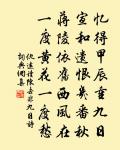 忆得甲辰重九日
宣和遗恨几番秋
蒋陵依旧西风在
一度黄花一度愁
仇远诗陈去非九日诗
词典网集